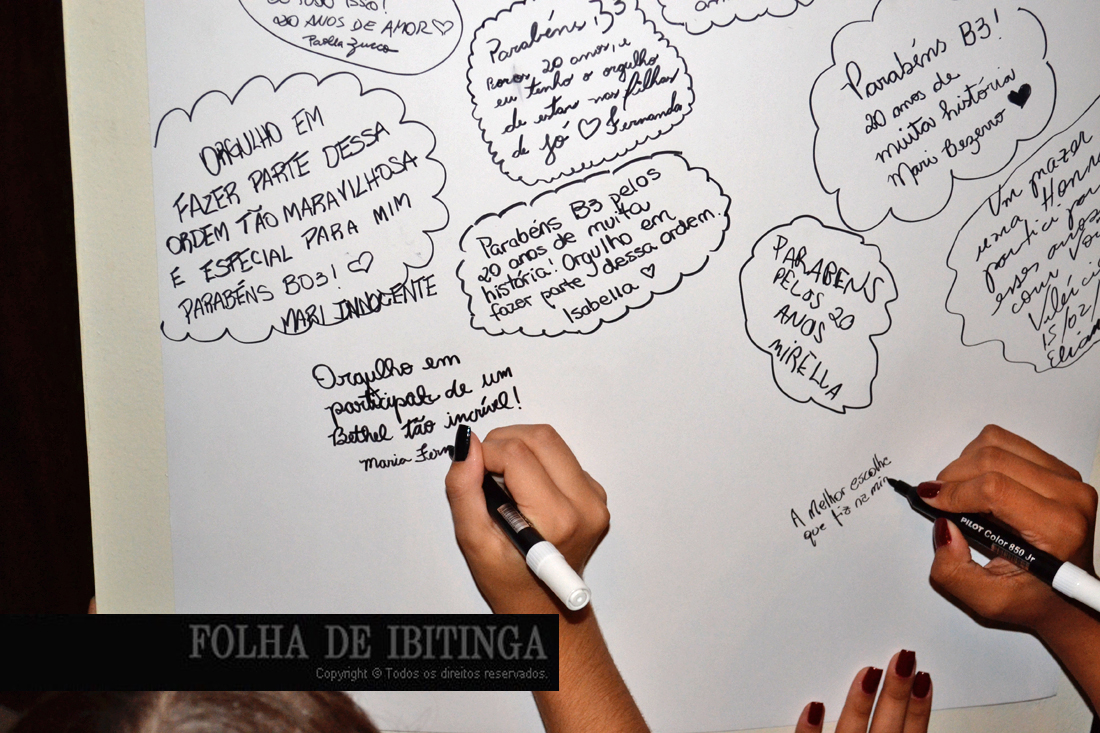 20 ANOS DE AMOR♡
Paolla Zucco
Parabéns B3
20 anos, e
eu tenho o orgulho
de estar nas filhas
de Jó ♡ Fernanda
Parabéns B3!
20 anos de
muita história
Mari Bezerro ♥
ORGULHO EM
FAZER PARTE DESSA
ORDEM TÃO MARAVILHOSA
E ESPECIAL PARA MIM
PARABÉNS B03! ♡
MARI INNOCENTE
Parabéns B3 pelos
20 anos de muita
história! Orgulho em
fazer parte dessa ordem.
Isabella ♡
PARABENS
PELOS 20
ANOS
MIRELLA
Um prazer
uma
esses anos
com
15/02/
Orgulho em
participar de um
Bethel tão incrível!
Maria Fern
A Melhor escolhe
que fiz na min
PILOT Color 850 Jr
FOLHA DE IBITINGA
Copyright © Todos os direitos reservados.